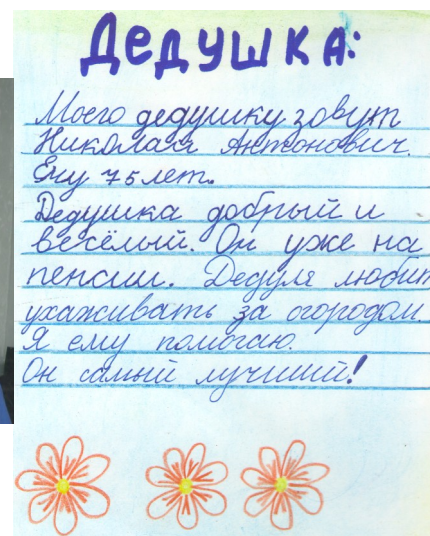 Дедушка:
Моего дедушку зовут
Николай Антонович.
Ему 75 лет.
Дедушка добрый и
весёлый. Он уже на
пенсии. Дедуля любит
ухаживать за огородом.
Я ему помогаю.
Он самый лучший!